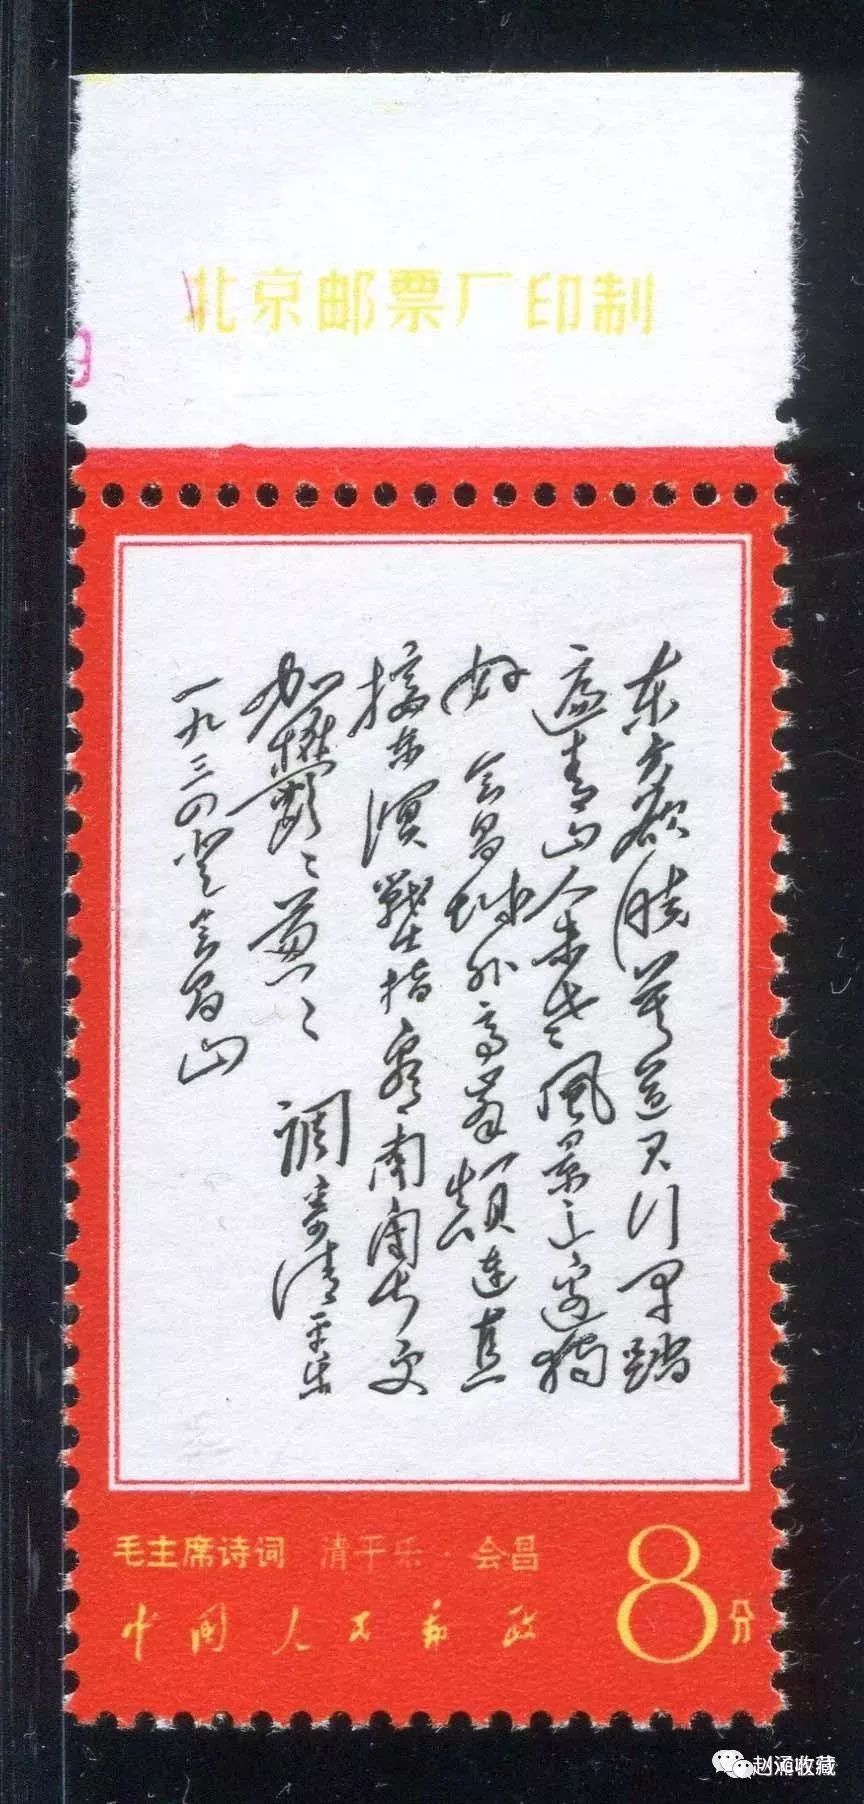 北京邮票厂印制
9
东方欲晓莫道君行早踏
遍青山人未老風景这边独
好 会昌城外高峯颠连直
接东溟戰士指看南粤更
加欝々葱々 调寄清平乐
一九三四登会昌山
毛主席诗词 清平乐·会昌
中国人民邮政
8分
赵涌收藏